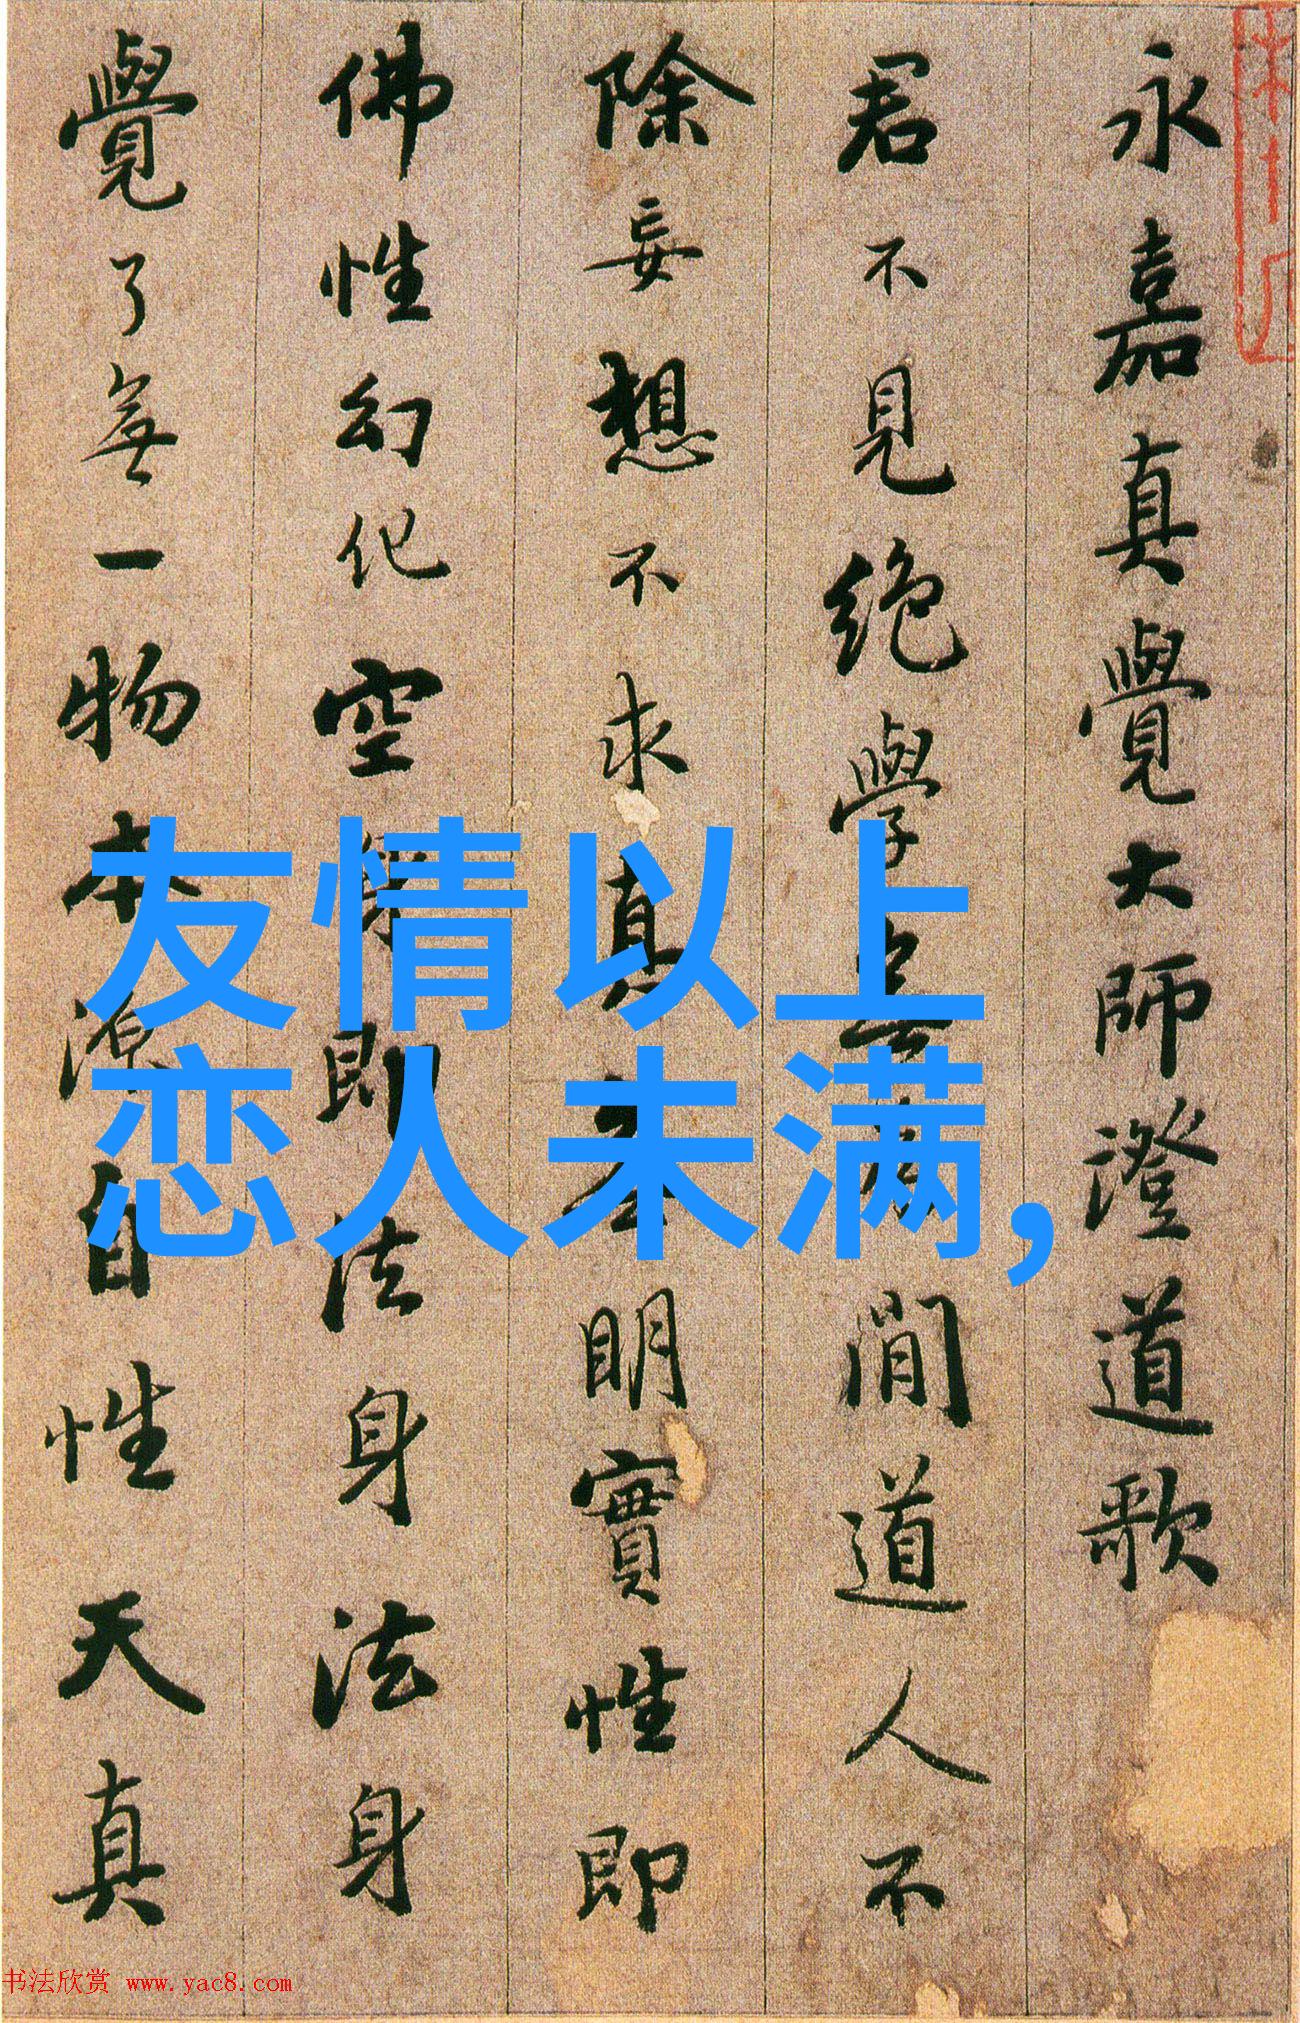 永嘉真覺大師澄道歌
君不見絕學無為閒道人不
除妄想不求真無明實性即
佛性幻化空身即法身法身
覺了無一物本源自性天真
友情以上
恋人未满,
书法欣赏 www.yac8.com